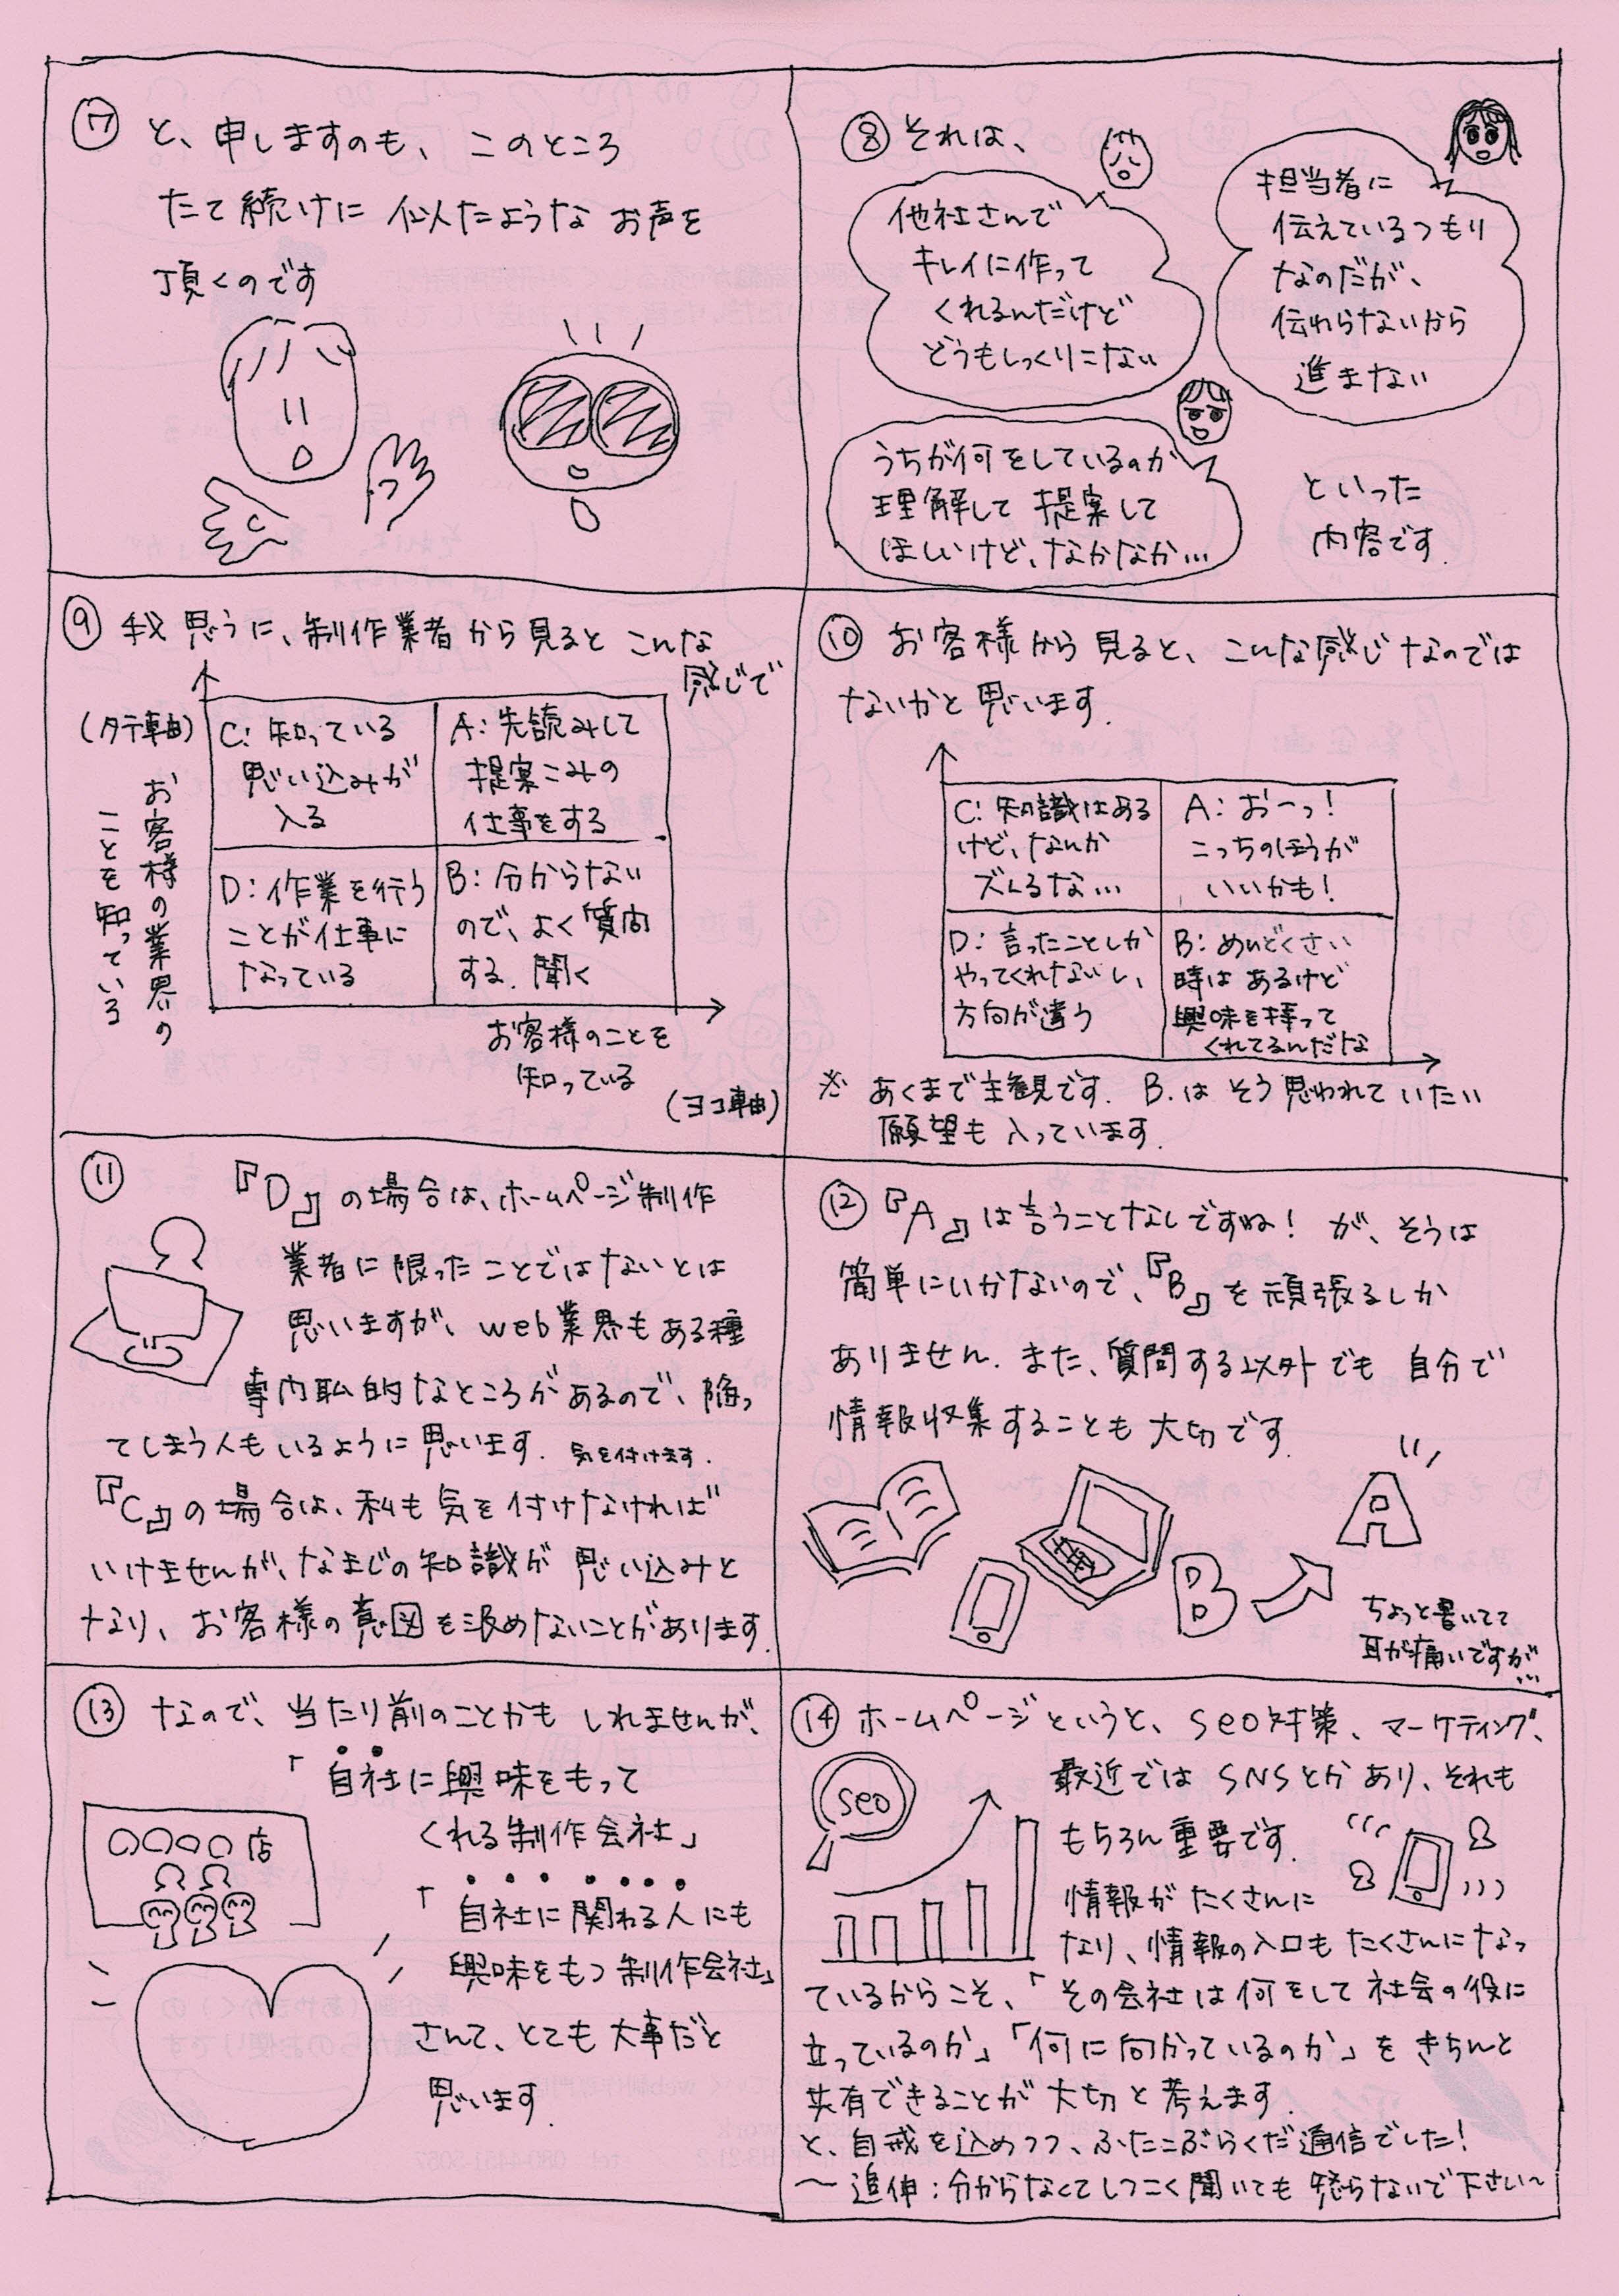 ⑦ と、申しますのも、このところ
たて続けに似たようなお声を
頂くのです
⑧ それは、
他社さんで
キレイに作って
くれるんだけど
どうもしっくりこない
担当者に
伝えているつもり
なのだが、
伝わらないから
進まない
うちが何をしているのか
理解して提案して
ほしいけど、なかなか…
といった
内容です.
⑨ 我思うに、制作業者から見るとこんな
感じで
(タテ軸)
お客様の業界の
ことを知っている
C: 知っている
思い込みが
入る
A: 先読みして
提案こみの
仕事をする
D: 作業を行う
ことが仕事に
なっている
B: 分からない
ので、よく質問
する. 聞く
お客様のことを
知っている
(ヨコ軸)
⑩ お客様から見ると、こんな感じなのでは
ないかと思います.
C: 知識はある
けど、なんか
ズレるな…
A: おーっ!
こっちのほうが
いいかも!
D: 言ったことしか
やってくれないし、
方向が違う
B: めんどくさい
時はあるけど
興味を持って
くれてるんだな
※ あくまで主観です. B.はそう思われていたい
願望も入っています.
⑪ 『D』の場合は、ホームページ制作
業者に限ったことではないとは
思いますが、web業界もある種
専門職的なところがあるので、陥っ
てしまう人もいるように思います. 気を付けます.
『C』の場合は、私も気を付けなければ
いけませんが、なまじの知識が思い込みと
なり、お客様の意図を汲めないことがあります.
⑫ 『A』は言うことなしですね! が、そうは
簡単にいかないので、『B』を頑張るしか
ありません. また、質問する以外でも自分で
情報収集することも大切です.
B
A
ちょっと書いてて
耳が痛いですが…
⑬ なので、当たり前のことかもしれませんが、
「自社に興味をもって
くれる制作会社」
「自社に関わる人にも
興味をもつ制作会社」
さんて、とても大事だと
思います.
〇〇〇〇店
⑭ ホームページというと、seo対策、マーケティング、
最近ではSNSとかあり、それも
もちろん重要です.
seo
情報がたくさんに
なり、情報の入口もたくさんになっ
ているからこそ、「その会社は何をして社会の役に
立っているのか」「何に向かっているのか」をきちんと
共有できることが大切と考えます.
と、自戒を込めつつ、ふたこぶらくだ通信でした!
〜 追伸:分からなくてしつこく聞いても怒らないで下さい〜